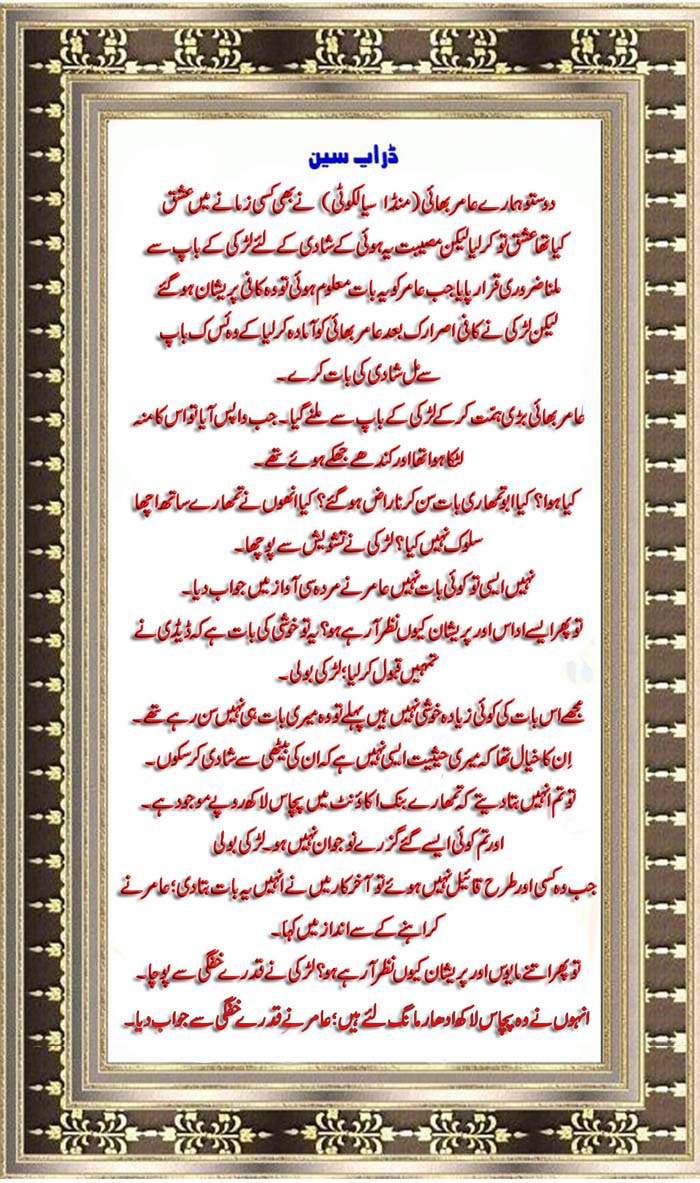 ڈراپ سین
دوستو ہمارے عامر بھائی (منڈا سیالکوٹی) نے بھی کسی زمانے میں عشق
کیا تھا عشق تو کر لیا لیکن مصیبت یہ ہوئی کے شادی کے لئے لڑکی کے باپ سے
ملنا ضروری قرار پایا جب عامر کو یہ بات معلوم ہوئی تو وہ کافی پریشان ہو گئے
لیکن لڑکی نے کافی اصرار ک بعد عامر بھائی کو آمادہ کر لیا کے وہ اُس ک باپ
سے مل شادی کی بات کرے۔
عامر بھائی بڑی ہمّت کر کے لڑکی کے باپ سے ملنے گیا۔ جب واپس آیا تو اس کا منہ
لٹکا ہوا تھا اور کندھے جھکے ہوئے تھے۔
کیا ہوا؟ کیا ابو تمھاری بات سن کر ناراض ہو گئے؟ کیا انھوں نے تمھارے ساتھ اچھا
سلوک نہیں کیا؟ لڑکی نے تشویش سے پوچھا۔
نہیں ایسی تو کوئی بات نہیں عامر نے مردہ سی آواز میں جواب دیا۔
تو پھر ایسے اداس اور پریشان کیوں نظر آرہے ہو؟ یہ تو خوشی کی بات ہے کہ ڈیڈی نے
تمہیں قبول کر لیا؛ لڑکی بولی۔
مجھے اس بات کی کوئی زیادہ خوشی نہیں ہیں پہلے تو وہ میری بات ہی نہیں سن رہے تھے۔
اِن کا خیال تھا کہ میری حیثیت ایسی نہیں ہے کہ ان کی بیٹھی سے شادی کر سکوں۔
تو تم انہیں بتا دیتے کہ تمھارے بنک اکاؤنٹ میں پچاس لاکھ روپے موجود ہے۔
اور تم کوئی ایسے گئے گزرے نوجوان نہیں ہو۔ لڑکی بولی
جب وہ کسی اور طرح قائیل نہیں ہوئے تو آخر کار میں نے انہیں یہ بات بتا دی؛ عامر نے
کراہنے کے سے انداز میں کہا۔
تو پھر اتنے مایوس اور پریشان کیوں نظر آرہے ہو؟ لڑکی نے قدرے خفگی سے پوچا۔
انہوں نے وہ پچاس لاکھ ادھار مانگ لئے ہیں؛ عامر نے قدرے خفگی سے جواب دیا۔